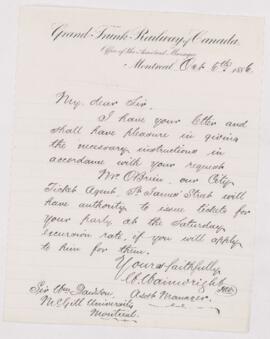 Grand Trunk Railway of Canada.
Office of the Assistant Manager
Montreal, Oct 6th 1886
My dear Sir.
I have your letter and
shall have pleasure in giving
the necessary instructions in
accordance with your request
Mr O'Brien our City
Ticket Agent St James Street will
have authority to issue tickets for
your party at the Saturday
excursion rate, if you will apply
to him for them.
Yours faithfully
W. Wainwright
Asst Manager.
Sir Wm Dawson
McGill University
Montreal